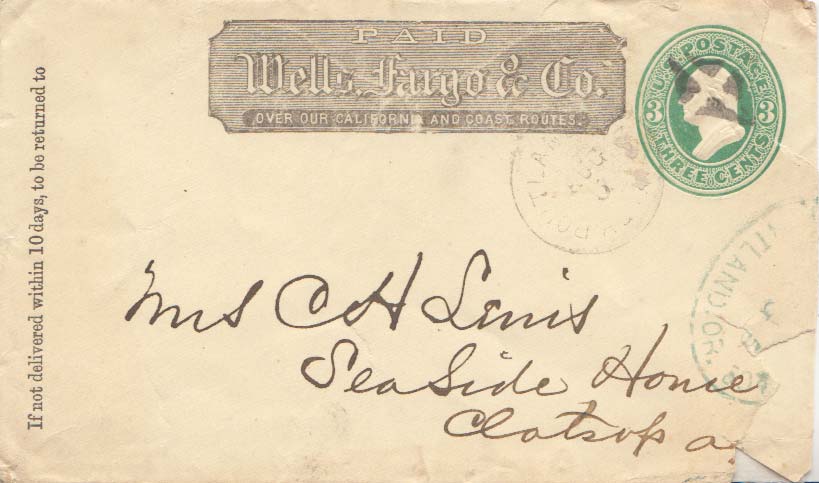 PAID
Wells, Fargo & Co.
OVER OUR CALIFORNIA AND COAST ROUTES.
U.S. POSTAGE
3 3
THREE CENTS
If not delivered within 10 days, to be returned to
PORTLAND
TLAND OR.
Mrs C H Lewis
SeaSide House
Clatsop